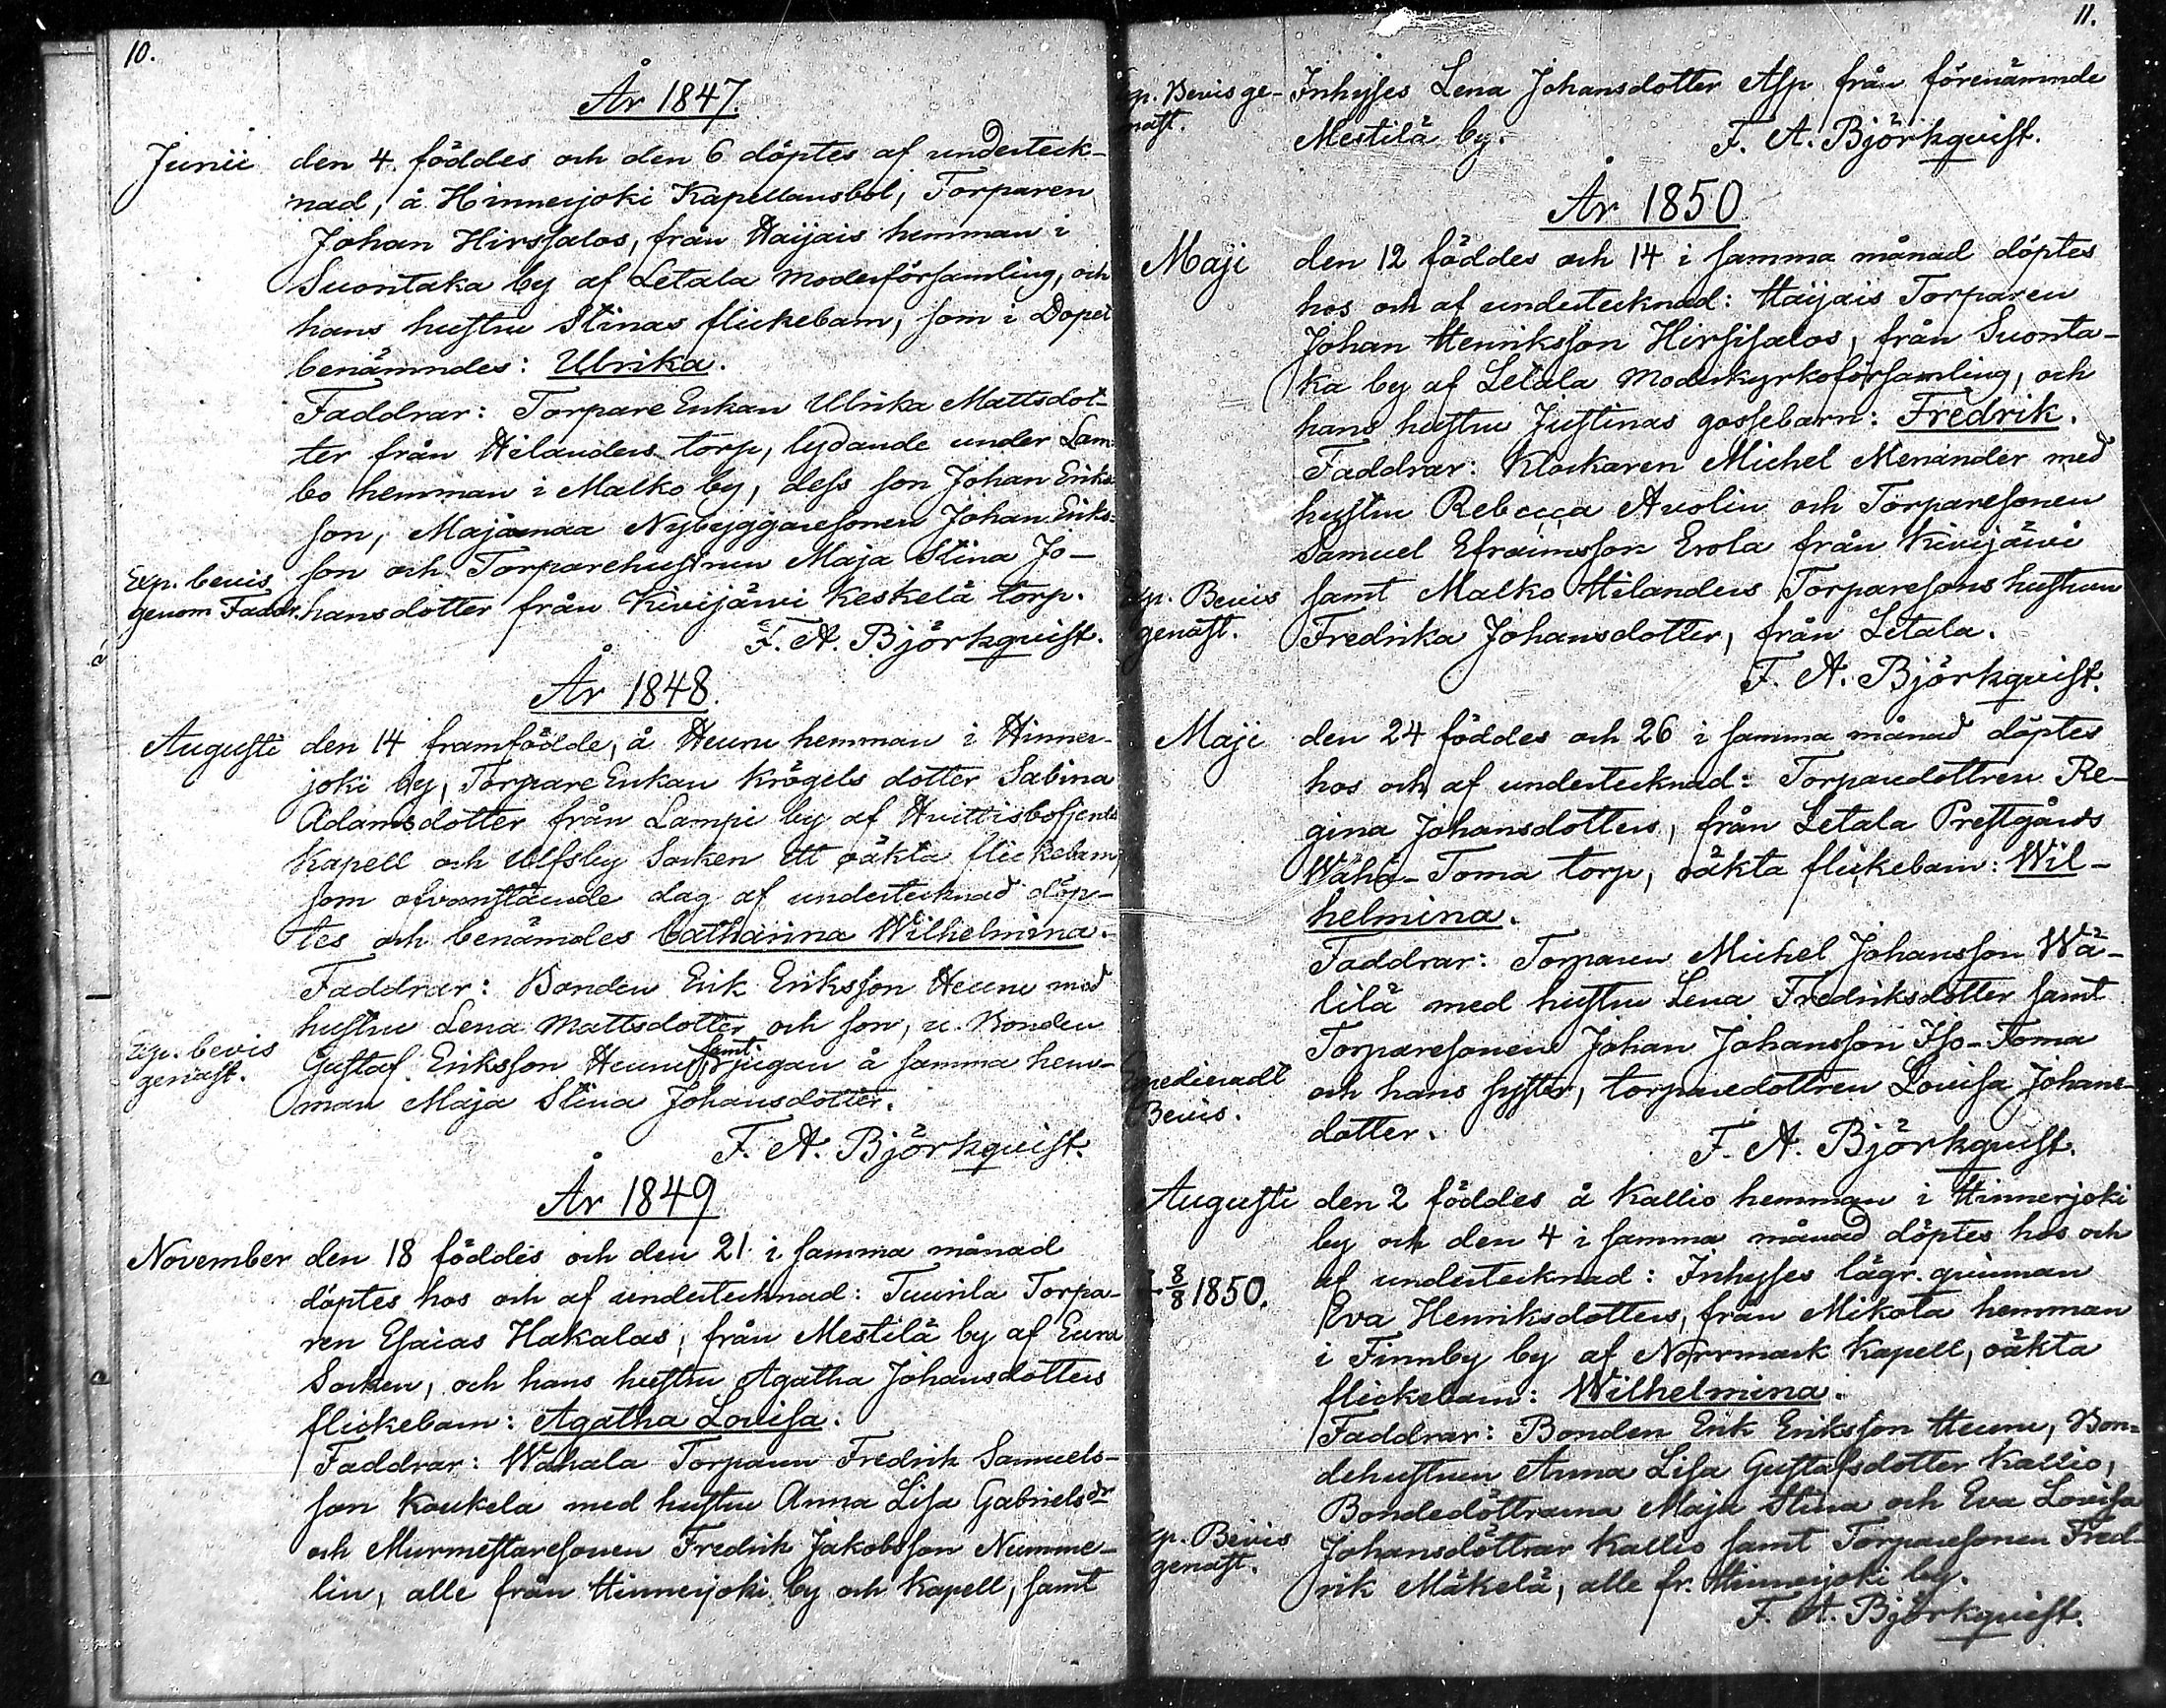 10.
År 1847.
Junii den 4. föddes och den 6 döptes af underteck-
nad, å Hinnerjoki Kapellansbol, Torparen
Johan Hirssalos, från Haijais hemman i
Suontaka by af Letala Moderförsamling, och
hans hustru Stinas flickebarn, som i Dopet
benämndes: Ulrika.
Faddrar: Torpare Enkan Ulrika Mattsdot-
ter från Hilanders torp, lydande under Lam-
bo hemman i Malko by, dess son Johan Eriks-
son, Majamaa Nybyggaresonen Johan Eriks-
son och Torparehustrun Maja Stina Jo-
Exp. bevis
genom Faddr. hansdotter från Kivijärvi Keskelä torp.
F. A. Björkqvist.
År 1848.
Augusti den 14 framfödde, å Heuru hemman i Hinner-
joki by, Torpare Enkan Krögels dotter Sabina
Adamsdotter från Lampi by af Hvittisbofjerds
Kapell och Ulfsby Socken ett oäkta flickebarn,
som ofvanstående dag af undertecknad döp-
tes och benämdes Catharina Wilhelmina.
Faddrar: Bonden Erik Eriksson Heuru med
hustru Lena Mattsdotter och son, u. Bonden
Exp. bevis
genast. Gustaf Eriksson Heuru samt Pjugan å samma hem-
man Maja Stina Johansdotter.
F. A. Björkqvist.
År 1849
November den 18 föddes och den 21 i samma månad
döptes hos och af undertecknad: Tuurila Torpa-
ren Esaias Hakalas, från Mestilä by af Eura
Socken, och hans hustru Agatha Johansdotters
flickebarn: Agatha Lovisa.
Faddrar: Wähala Torparen Fredrik Samuels-
son Koukela med hustru Anna Lisa Gabrielsdr
och Murmestaresonen Fredrik Jakobsson Numme-
lin, alle från Hinnerjoki by och Kapell, samt
11.
Exp. Bevis ge-
nast. Inhyses Lena Johansdotter Asp från förenämnde
Mestilä by. F. A. Björkqvist.
År 1850
Maji den 12 föddes och 14 i samma månad döptes
hos och af undertecknad: Haijais Torparen
Johan Henriksson Hirsisalos, från Suonta-
ka by af Letala Moderkyrkoförsamling, och
hans hustru Justinas gossebarn: Fredrik.
Faddrar: Klockaren Michel Menander med
hustru Rebecca Avolin och Torparesonen
Samuel Efraimsson Erola från Kivijärvi
Exp. Bevis samt Malko Hilanders Torparesons hustrun
genast. Fredrika Johansdotter, från Letala.
F. A. Björkqvist.
Maji den 24 föddes och 26 i samma månad döptes
hos och af undertecknad: Torparedottren Re-
gina Johansdotters, från Letala Prestgårds
Wähä-Toma torp, oäkta flickebarn: Wil-
helmina.
Faddrar: Torparen Michel Johansson Wä-
lilä med hustru Lena Fredriksdotter samt
Torparesonen Johan Johansson Iso-Toma
Expedieradt och hans syster, torparedottren Lovisa Johans-
Bevis. dotter.
F. A. Björkqvist.
Augusti den 2 föddes å Kallio hemman i Hinnerjoki
by och den 4 i samma månad döptes hos och
† 8/8 1850. af undertecknad: Inhyses lägr. qvinnan
Eva Henriksdotters, från Mikola hemman
i Finnby by af Norrmark Kapell, oäkta
flickebarn: Wilhelmina.
Faddrar: Bonden Erik Eriksson Heuru, Bon-
dehustrun Anna Lisa Gustafsdotter Kallio,
Bondedöttrarna Maja Stina och Eva Lovisa
Exp. Bevis Johansdöttrar Kallio samt Torparesonen Fred-
genast. rik Mäkelä, alle fr. Hinnerjoki by.
F. A. Björkqvist.